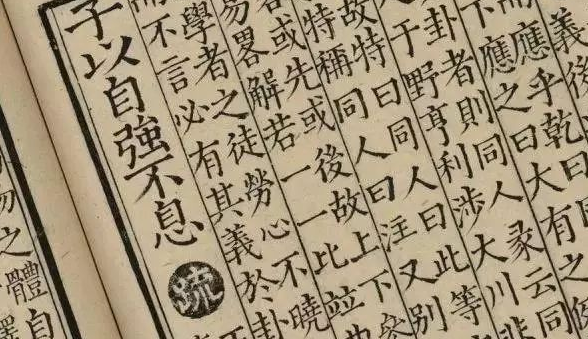 義後
應乎乾
應之曰大有之
卦者則同人彖云同
于野亨利涉大川非
故特曰同人曰此等
特稱同人曰注又別
或先或後故上下參
易畧解若一一比竝曲
學者之徒勞心不曉
而不言必有其義於卦
子以自強不息疏
之體自